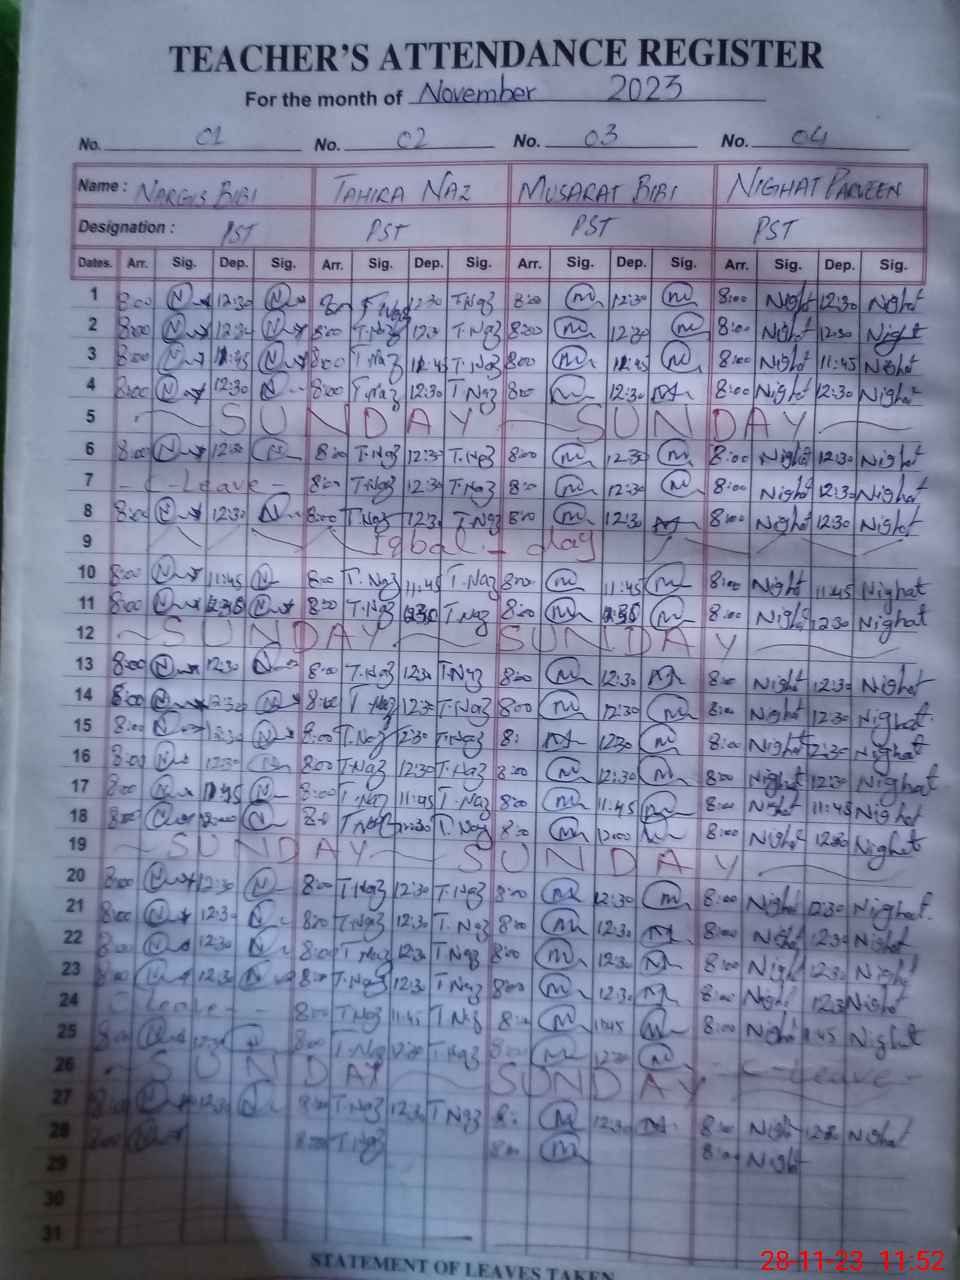 TEACHER'S ATTENDANCE REGISTER
For the month of November 2023
No. 01 No. 02 No. 03 No. 04
Name : NARGIS BIBI TAHIRA NAZ MUSARAT BIBI NIGHAT PARVEEN
Designation : PST PST PST PST
Dates. Arr. Sig. Dep. Sig. Arr. Sig. Dep. Sig. Arr. Sig. Dep. Sig. Arr. Sig. Dep. Sig.
1 8:00 N 12:30 N T.Naz 12:30 T.Naz 8:00 m 12:30 m 8:00 Nighat 12:30 Nighat
2 8:00 N 12:30 N 8:00 T.Naz 12:30 T.Naz 8:00 m 12:30 m 8:00 Nighat 12:30 Nighat
3 8:00 N 11:45 N 8:00 T.Naz 11:45 T.Naz 8:00 m 11:45 m 8:00 Nighat 11:45 Nighat
4 8:00 N 12:30 N 8:00 T.Naz 12:30 T.Naz 8:00 m 12:30 8:00 Nighat 12:30 Nighat
5 SUNDAY SUNDAY
6 8:00 N 12:30 N 8:00 T.Naz 12:30 T.Naz 8:00 m 12:30 m 8:00 Nighat 12:30 Nighat
7 - C-Leave - 8:00 T.Naz 12:30 T.Naz 8:00 m 12:30 m 8:00 Nighat 12:30 Nighat
8 8:00 N 12:30 N 8:00 T.Naz 12:30 T.Naz 8:00 m 12:30 8:00 Nighat 12:30 Nighat
9 Iqbal - day
10 8:00 N 11:45 N 8:00 T.Naz 11:45 T.Naz 8:00 m 11:45 m 8:00 Nighat 11:45 Nighat
11 8:00 N N 8:00 T.Naz T.Naz 8:00 m m 8:00 Nighat 12:30 Nighat
12 SUNDAY SUNDAY
13 8:00 N 12:30 N 8:00 T.Naz 12:30 T.Naz 8:00 m 12:30 8:00 Nighat 12:30 Nighat
14 8:00 N 12:30 N 8:00 T.Naz 12:30 T.Naz 8:00 m 12:30 m 8:00 Nighat 12:30 Nighat
15 8:00 N 12:30 N 8:00 T.Naz 12:30 T.Naz 8: 12:30 m 8:00 Nighat 12:30 Nighat
16 8:00 N 12:30 N 8:00 T.Naz 12:30 T.Naz 8:00 m 12:30 m 8:00 Nighat 12:30 Nighat
17 8:00 N 11:45 N 8:00 T.Naz 11:45 T.Naz 8:00 m 11:45 m 8:00 Nighat 11:45 Nighat
18 8:00 N N T.Naz T.Naz 8:00 m 12:00 8:00 Nighat 12:30 Nighat
19 SUNDAY SUNDAY
20 8:00 N 12:30 N 8:00 T.Naz 12:30 T.Naz 8:00 m 12:30 m 8:00 Nighat 12:30 Nighat
21 8:00 N 12:30 N 8:00 T.Naz 12:30 T.Naz 8:00 m 12:30 8:00 Nighat 12:30 Nighat
22 8:00 N 12:30 N 8:00 T.Naz 12:30 T.Naz 8:00 m 12:30 8:00 Nighat 12:30 Nighat
23 8:00 N 12:30 N 8:00 T.Naz 12:30 T.Naz 8:00 m 12:30 8:00 Nighat 12:30 Nighat
24 - C Leave - 8:00 T.Naz 11:45 T.Naz 8:00 m 11:45 m 8:00 Nighat 11:45 Nighat
25 8:00 N N 8:00 T.Naz T.Naz 8:00 m m - C-Leave -
26 SUNDAY SUNDAY
27 8:00 N 12:30 N 8:00 T.Naz 12:30 T.Naz 8: m 12:30 8:00 Nighat Nighat
28 8:00 N 8:00 T.Naz 8:00 m 8:00 Nighat
29
30
31
STATEMENT OF LEAVES TAKEN
28-11-23 11:52